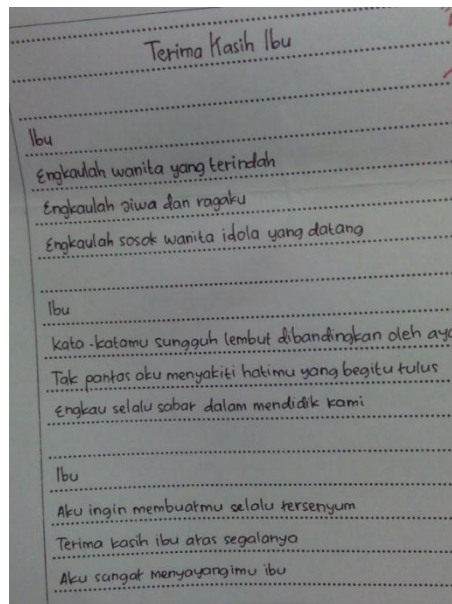 Terima Kasih Ibu
Ibu
Engkaulah wanita yang terindah
Engkaulah jiwa dan ragaku
Engkaulah sosok wanita idola yang datang
Ibu
kata-katamu sungguh lembut dibandingkan oleh
Tak pantas aku menyakiti hatimu yang begitu tulus
Engkau selalu sabar dalam mendidik kami
Ibu
Aku ingin membuatmu selalu tersenyum
Terima kasih ibu atas segalanya
Aku sangat menyayangimu ibu